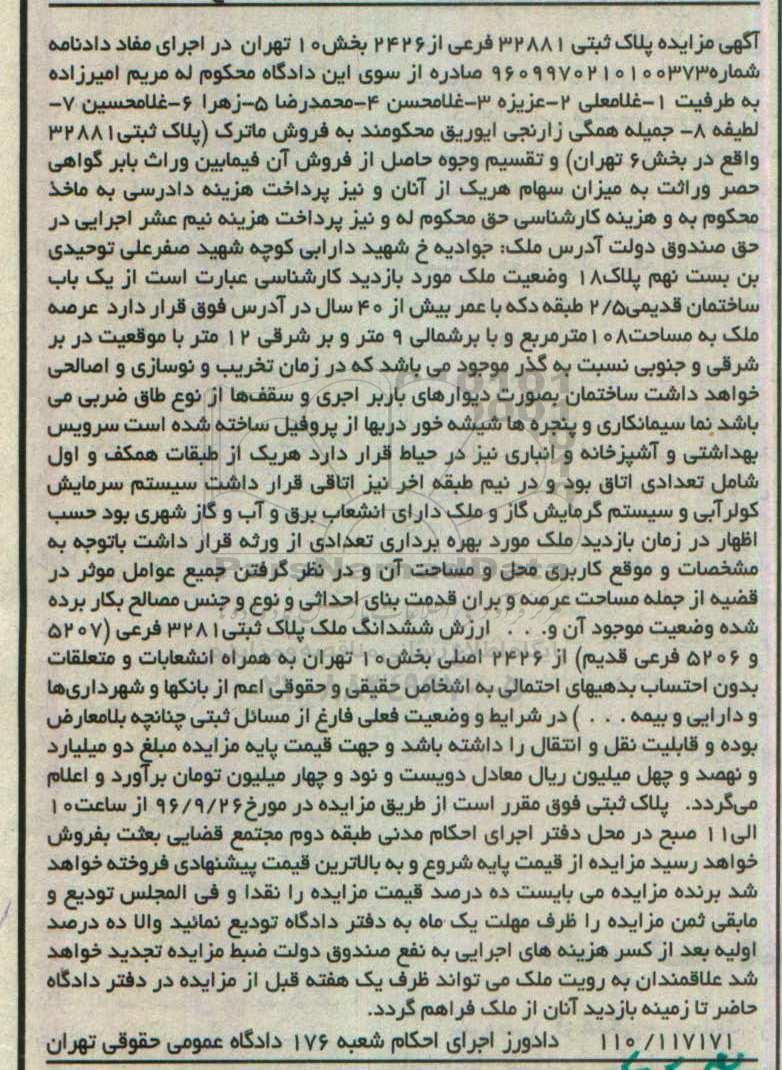 آگهی مزایده پلاک ثبتی ۳۲۸۸۱ فرعی از۲۴۲۶ بخش۱۰ تهران در اجرای مفاد دادنامه
شماره۹۶۰۹۹۷۰۲۱۰۱۰۰۳۷۳ صادره از سوی این دادگاه محکوم له مریم امیرزاده
به طرفیت ۱-غلامعلی ۲-عزیزه ۳-غلامحسن ۴-محمدرضا ۵-زهرا ۶-غلامحسین ۷-
لطیفه ۸- جمیله همگی زارنجی ایوریق محکومند به فروش ماترک (پلاک ثبتی۳۲۸۸۱
واقع در بخش۶ تهران) و تقسیم وجوه حاصل از فروش آن فیمابین وراث بابر گواهی
حصر وراثت به میزان سهام هریک از آنان و نیز پرداخت هزینه دادرسی به ماخذ
محکوم به و هزینه کارشناسی حق محکوم له و نیز پرداخت هزینه نیم عشر اجرایی در
حق صندوق دولت آدرس ملک: جوادیه خ شهید دارابی کوچه شهید صفرعلی توحیدی
بن بست نهم پلاک۱۸ وضعیت ملک مورد بازدید کارشناسی عبارت است از یک باب
ساختمان قدیمی۲/۵ طبقه دکه با عمر بیش از ۴۰ سال در آدرس فوق قرار دارد عرصه
ملک به مساحت۱۰۸مترمربع و با برشمالی ۹ متر و بر شرقی ۱۲ متر با موقعیت در بر
شرقی و جنوبی نسبت به گذر موجود می باشد که در زمان تخریب و نوسازی و اصالحی
خواهد داشت ساختمان بصورت دیوارهای باربر اجری و سقف‌ها از نوع طاق ضربی می
باشد نما سیمانکاری و پنجره ها شیشه خور دربها از پروفیل ساخته شده است سرویس
بهداشتی و آشپزخانه و انباری نیز در حیاط قرار دارد هریک از طبقات همکف و اول
شامل تعدادی اتاق بود و در نیم طبقه اخر نیز اتاقی قرار داشت سیستم سرمایش
کولرآبی و سیستم گرمایش گاز و ملک دارای انشعاب برق و آب و گاز شهری بود حسب
اظهار در زمان بازدید ملک مورد بهره برداری تعدادی از ورثه قرار داشت باتوجه به
مشخصات و موقع کاربری محل و مساحت آن و در نظر گرفتن جمیع عوامل موثر در
قضیه از جمله مساحت عرصه و بران قدمت بنای احداثی و نوع و جنس مصالح بکار برده
شده وضعیت موجود آن و. . . ارزش ششدانگ ملک پلاک ثبتی۳۲۸۱ فرعی (۵۲۰۷
و ۵۲۰۶ فرعی قدیم) از ۲۴۲۶ اصلی بخش۱۰ تهران به همراه انشعابات و متعلقات
بدون احتساب بدهیهای احتمالی به اشخاص حقیقی و حقوقی اعم از بانکها و شهرداری‌ها
و دارایی و بیمه . . . ) در شرایط و وضعیت فعلی فارغ از مسائل ثبتی چنانچه بلامعارض
بوده و قابلیت نقل و انتقال را داشته باشد و جهت قیمت پایه مزایده مبلغ دو میلیارد
و نهصد و چهل میلیون ریال معادل دویست و نود و چهار میلیون تومان برآورد و اعلام
می‌گردد. پلاک ثبتی فوق مقرر است از طریق مزایده در مورخ۹۶/۹/۲۶ از ساعت۱۰
الی۱۱ صبح در محل دفتر اجرای احکام مدنی طبقه دوم مجتمع قضایی بعثت بفروش
خواهد رسید مزایده از قیمت پایه شروع و به بالاترین قیمت پیشنهادی فروخته خواهد
شد برنده مزایده می بایست ده درصد قیمت مزایده را نقدا و فی المجلس تودیع و
مابقی ثمن مزایده را ظرف مهلت یک ماه به دفتر دادگاه تودیع نمائید والا ده درصد
اولیه بعد از کسر هزینه های اجرایی به نفع صندوق دولت ضبط مزایده تجدید خواهد
شد علاقمندان به رویت ملک می تواند ظرف یک هفته قبل از مزایده در دفتر دادگاه
حاضر تا زمینه بازدید آنان از ملک فراهم گردد.
۱۱۰/ ۱۱۷۱۷۱ دادورز اجرای احکام شعبه ۱۷۶ دادگاه عمومی حقوقی تهران